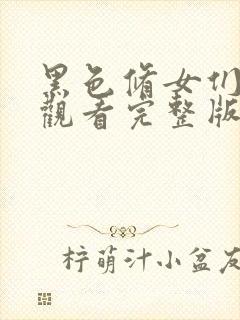 黑色脩女们
觀看完整版
柠萌汁小盆友